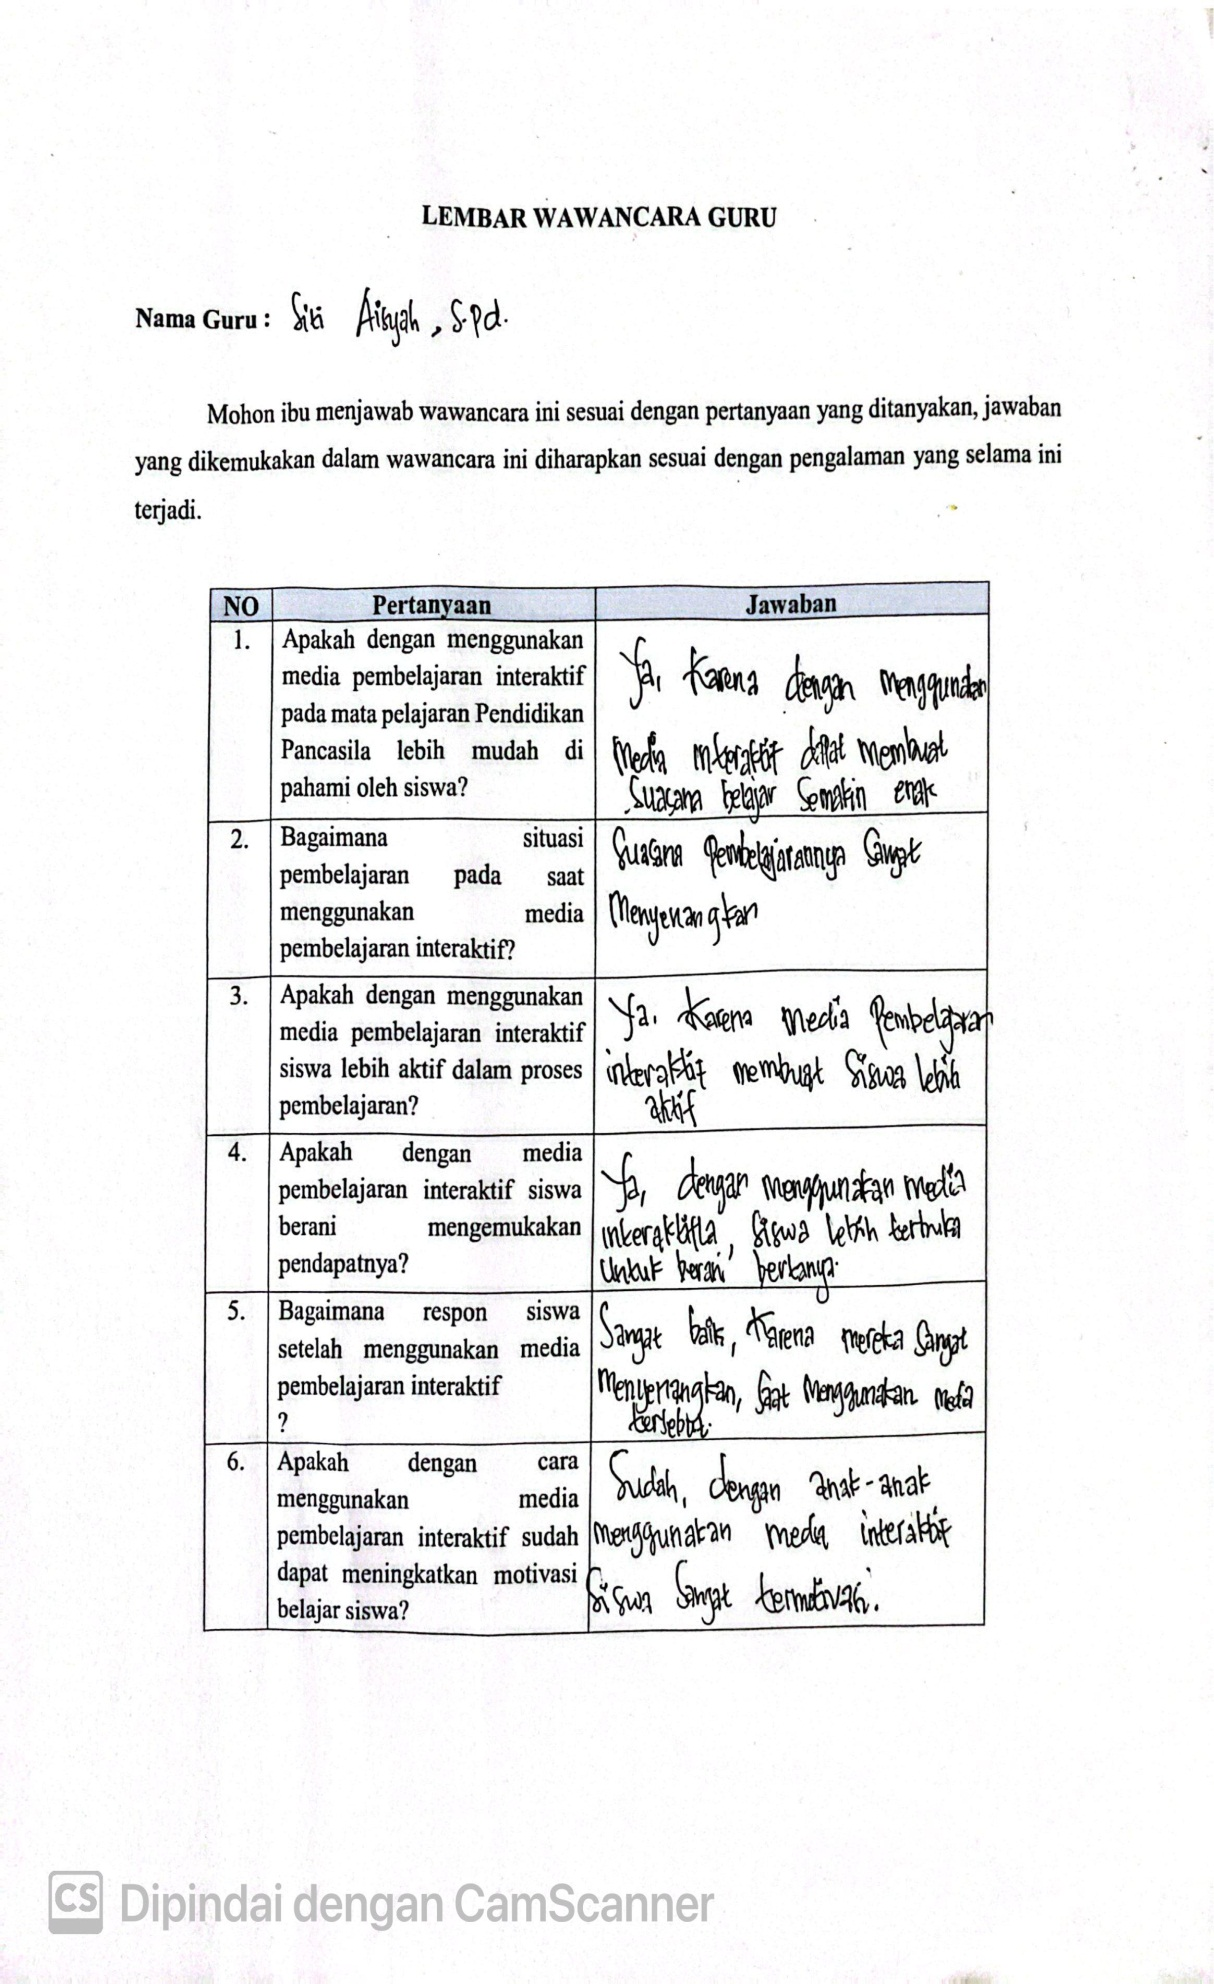 LEMBAR WAWANCARA GURU
Nama Guru : Siti Aisyah, S.Pd.
Mohon ibu menjawab wawancara ini sesuai dengan pertanyaan yang ditanyakan, jawaban
yang dikemukakan dalam wawancara ini diharapkan sesuai dengan pengalaman yang selama ini
terjadi.
NO Pertanyaan Jawaban
1.
Apakah dengan menggunakan
media pembelajaran interaktif
pada mata pelajaran Pendidikan
Pancasila lebih mudah di
pahami oleh siswa?
Ya, Karena dengan menggunakan
Media interaktif dapat membuat
Suasana belajar Semakin enak
2.
Bagaimana situasi
pembelajaran pada saat
menggunakan media
pembelajaran interaktif?
Suasana Pembelajarannya Sangat
Menyenangkan
3.
Apakah dengan menggunakan
media pembelajaran interaktif
siswa lebih aktif dalam proses
pembelajaran?
Ya. Karena media Pembelajaran
interaktif membuat Siswa lebih
aktif
4.
Apakah dengan media
pembelajaran interaktif siswa
berani mengemukakan
pendapatnya?
Ya, dengan menggunakan media
, Siswa lebih terbuka
Untuk berani bertanya.
5.
Bagaimana respon siswa
setelah menggunakan media
pembelajaran interaktif
?
Sangat baik, Karena mereka Sangat
Menyenangkan, Saat Menggunakan
tersebut.
6.
Apakah dengan cara
menggunakan media
pembelajaran interaktif sudah
dapat meningkatkan motivasi
belajar siswa?
Sudah, dengan anak-anak
menggunakan media interaktif
Siswa Sangat termotivasi.
CS Dipindai dengan CamScanner